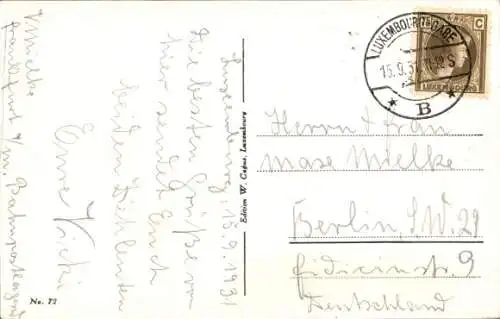 Luxemburg, 15.9.1931
Die besten Grüße von
hier sendet Euch
beiden Dichtenden
Eure
V. Mielke
Frankfurt a/m. Bahnpostamt
No. 72
Edition W. Capus, Luxembourg
LUXEMBOURG-GARE
15.9.31
B
C
LUXEMBOURG
Herrn & Frau
Maxe Mielke
Berlin, S.W. 29
Fidicinstr. 9
Deutschland